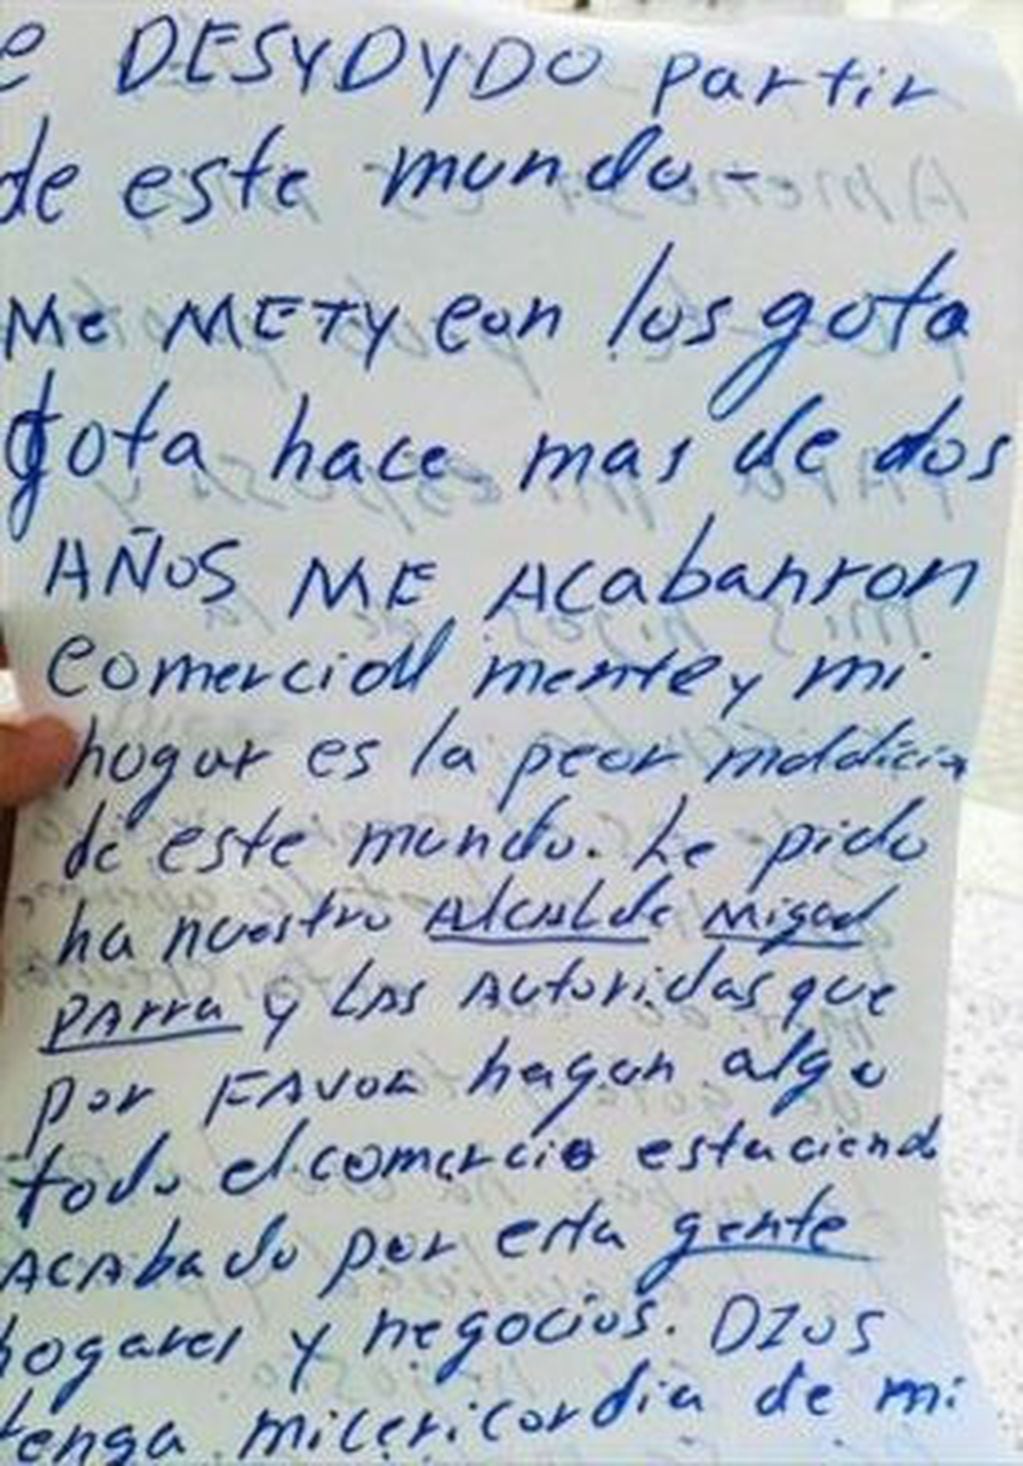 e DESYDYDO partir
de este mundo-
Me METY con los gota
gota hace mas de dos
AÑOS ME Acabanron
comerciall mente y mi
hogar es la peor maldicion
de este mundo. Le pido
ha nuestro Alcalde Miguel
PArra y LAS Autoridas que
por FAVOR hagan algo
todo el comercio esta ciendo
ACAbado por esta gente
hogares y negocios. DIOS
tenga micericordia de mi